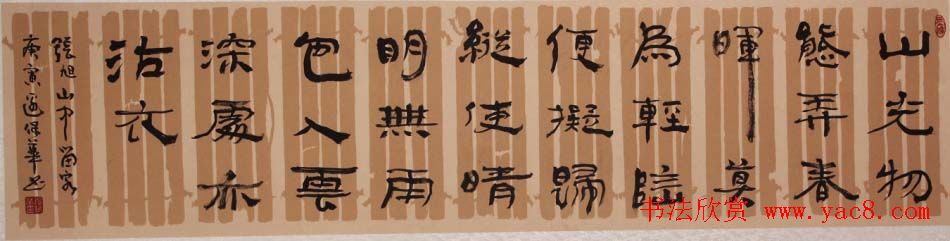 山光物
態弄春
暉莫
為輕陰
便擬歸
縱使晴
明無雨
色入雲
深處亦
沾衣
張旭山中留客
庚寅保華書
书法欣赏 www.yac8.com